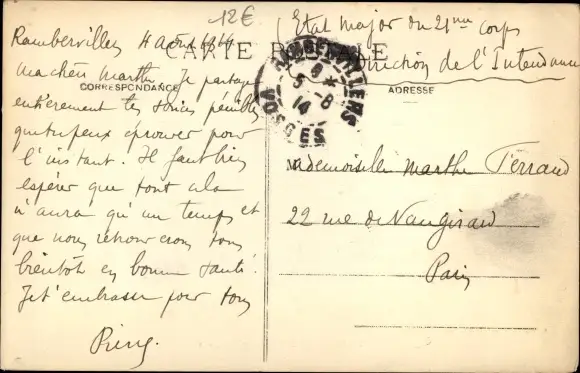 12€
Rambervillers 4 Août 1914
CARTE POSTALE
CORRESPONDANCE
Ma chère Marthe. Je partage
entièrement les soucis pénibles
que tu peux éprouver pour
l'instant. Il faut bien
espérer que tout cela
n'aura qu'un temps et
que nous nous retrouverons tous
bientôt en bonne santé.
Je t'embrasse pour tous
Pierre.
Etat Major du 21me Corps
Direction de l'Intendance
RAMBERVILLERS
5-8
14
VOSGES
ADRESSE
Mademoiselle Marthe Ferrand
22 rue de Vaugirard
Paris